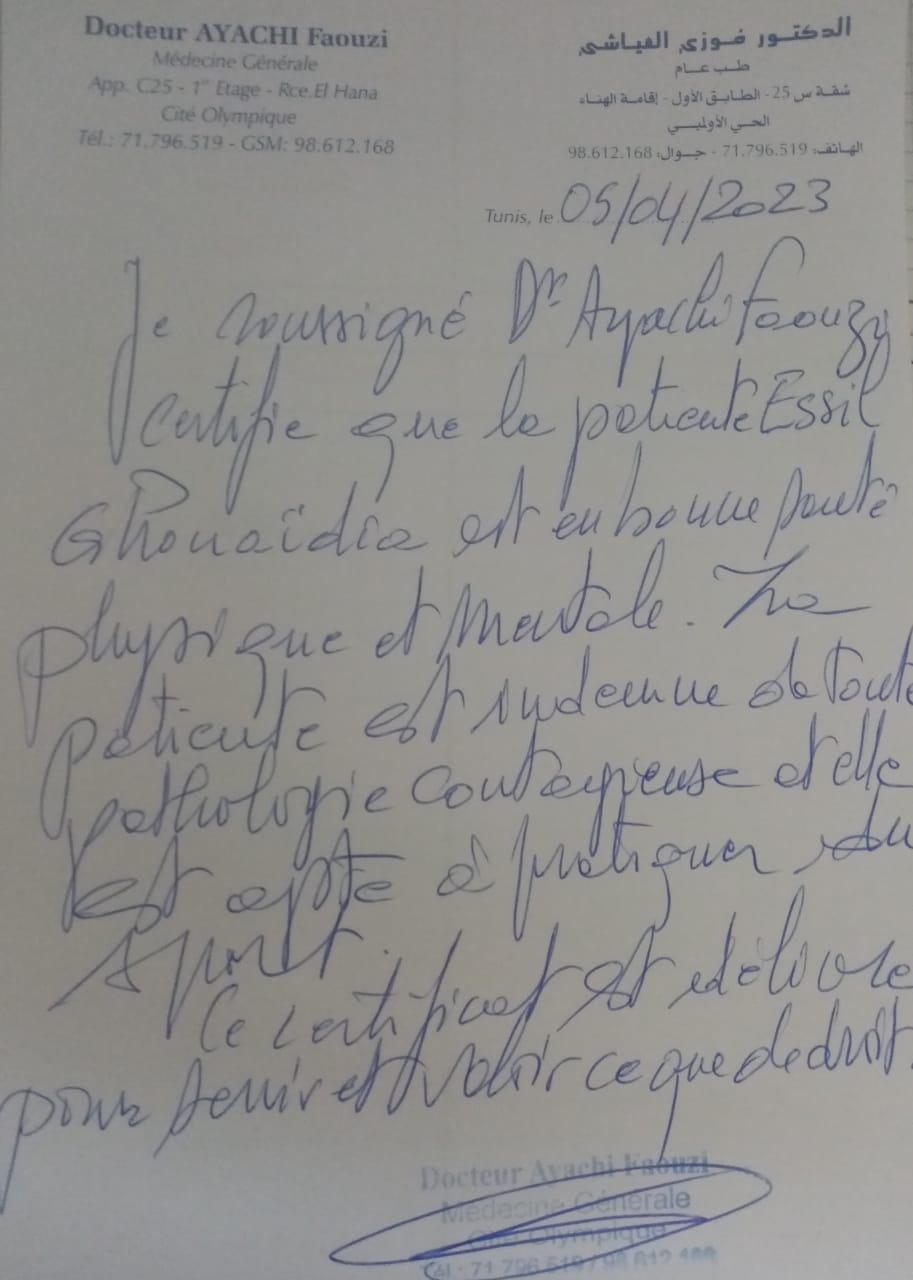 Docteur AYACHI Faouzi
Médecine Générale
App. C25 - 1er Etage - Rce.El Hana
Cité Olympique
Tél.: 71.796.519 - GSM: 98.612.168
الدكتور فوزي العياشي
طب عام
شقة س 25 - الطابق الأول - إقامة الهناء
الحي الأولمبي
الهاتف: 71.796.519 - جوال: 98.612.168
Tunis, le 05/04/2023
Je soussigné Dr Ayachi Faouzy
certifie que la patiente Essil
Ghouaïdia est en bonne santé
physique et mentale. La
patiente est indemne de toute
pathologie contagieuse et elle
est apte à pratiquer du
sport.
Ce certificat est délivré
pour servir et valoir ce que de droit.
Docteur Ayachi Faouzi
Médecine Générale
Cité Olympique
Tél : 71 796 519 / 98 612 168